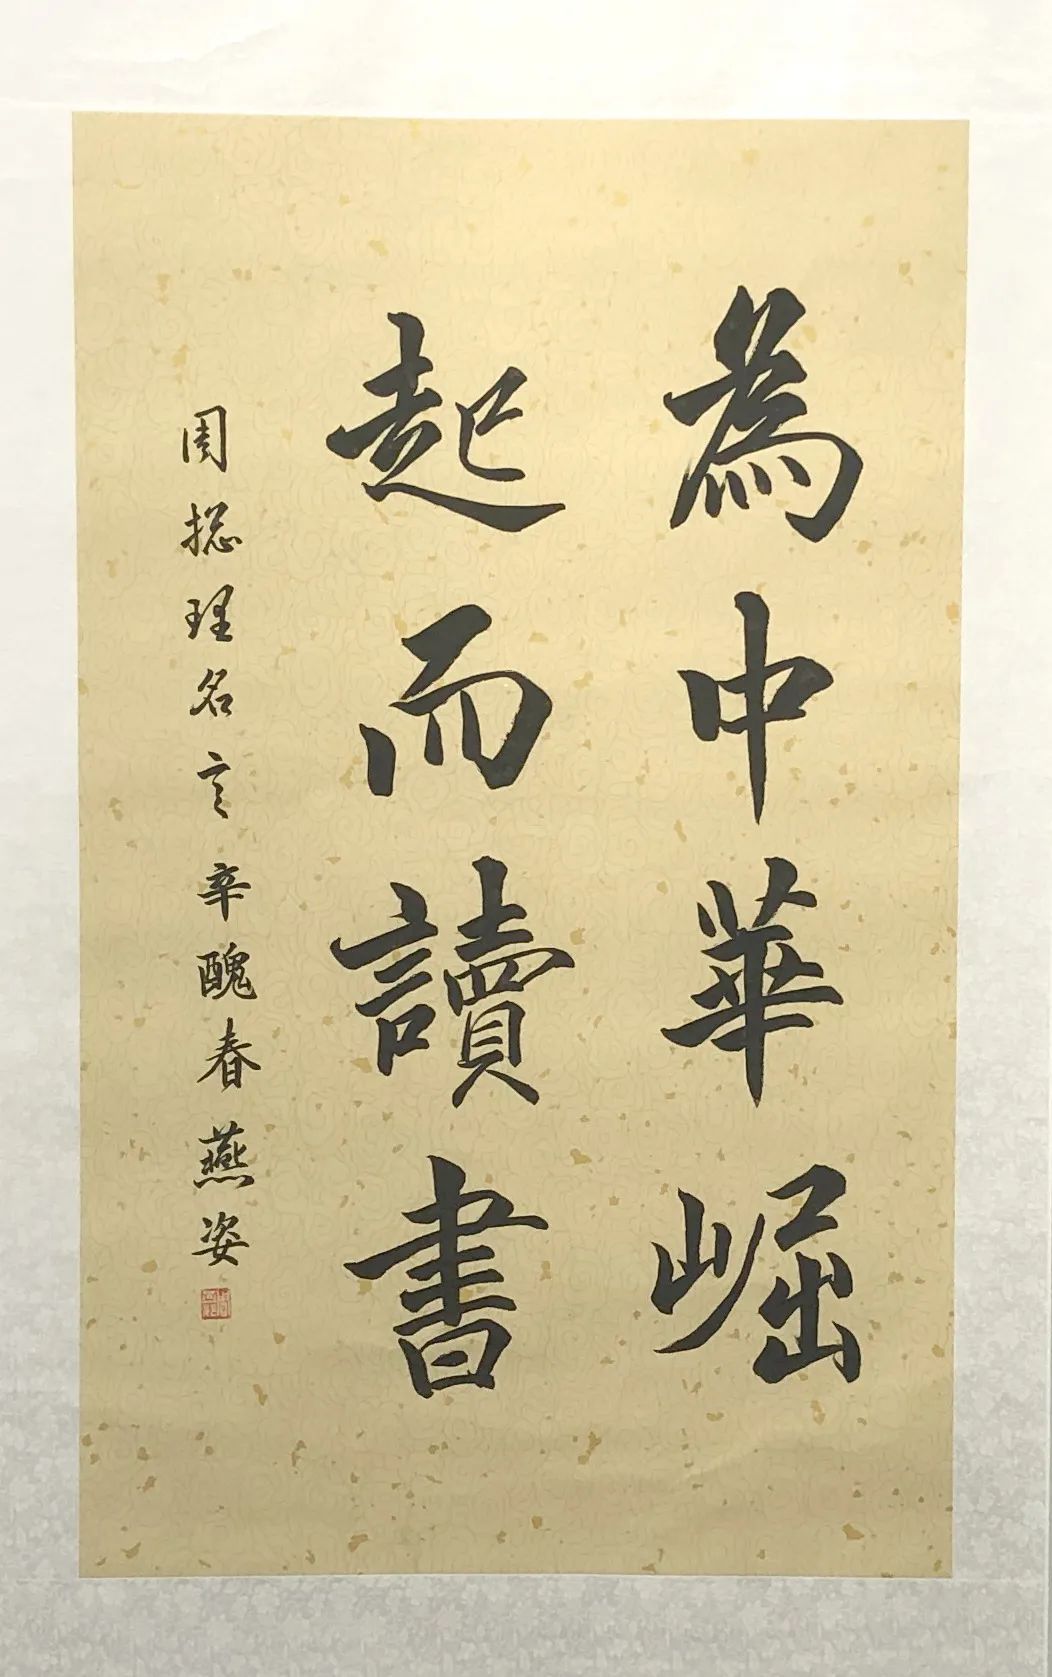 為中華崛
起而讀書
周揔理名言辛醜春燕姿